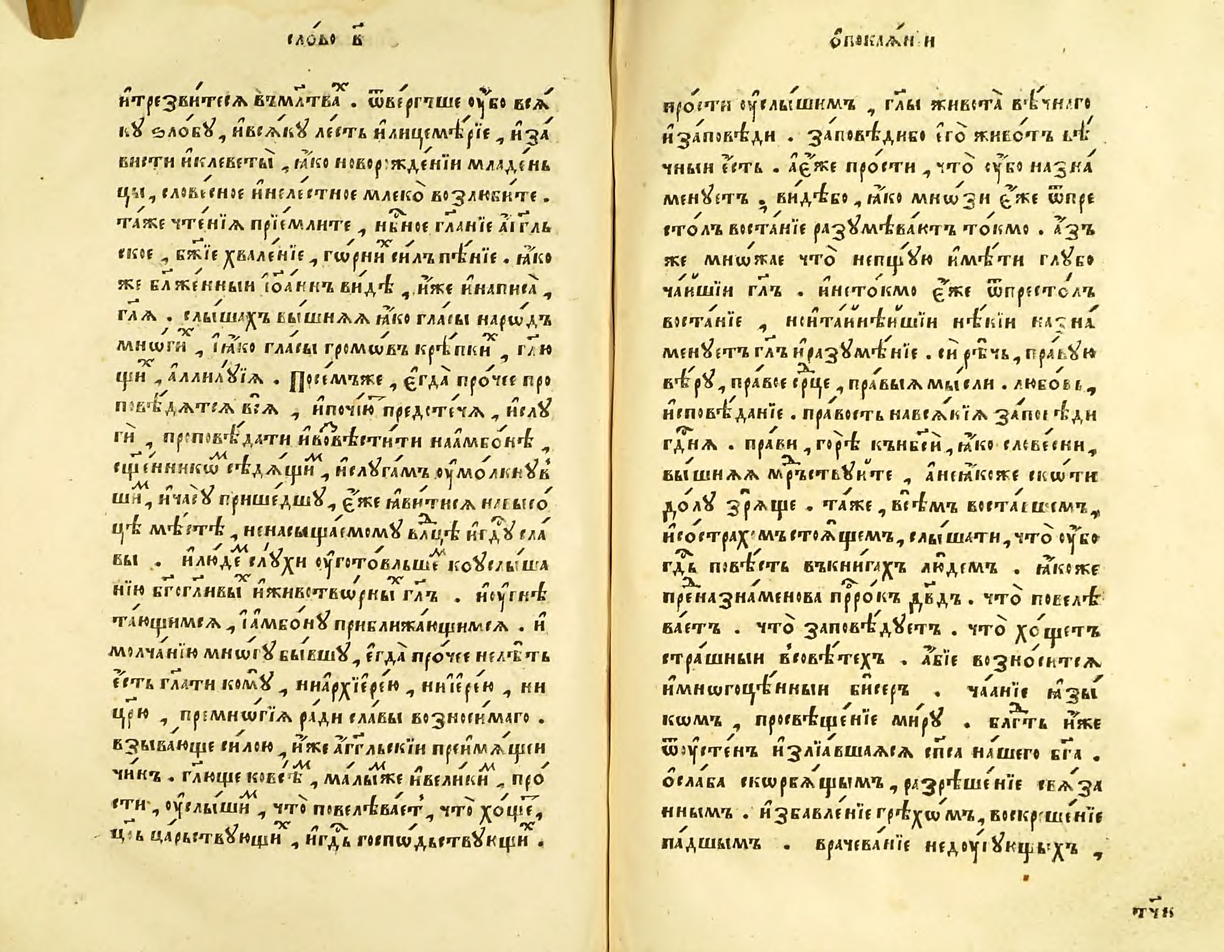 сло́во в҃
и҆трезви́теся въмл҃тва́ⷯ . ѿве́ргъше ѹ҆́бо вся́
кꙋ ѕло́бꙋ , и҆вся́кꙋ ле́сть и҆лицемѣ́рїе , и҆за́
висти и҆клеветы̀ , ꙗ҆́ко новорожде́нїи младе́нь
цы , слове́сное и҆неле́стное млеко̀ возлюби́те .
та́же чте́нїя прїе́млите , нбⷭ҇ное гл҃а́нїе а҆́гг҃ль
ское , бж҃їе хвале́нїе , го́рниⷯ си́лъ пѣ́нїе . ꙗ҆́ко
же бл҃же́нныи і҆ѡа́ннъ ви́дѣ , и҆́же и҆написа̀ ,
гл҃я . слы́шахъ вы́шняя ꙗ҆́ко гла́сы наро́дъ
мно́гиⷯ , і҆ꙗ҆́ко гла́сы громѡ́въ крѣ́пкиⷯ , гл҃ю
щиⷯ , аллилꙋ́їя . Посе́мъже , є҆гда̀ про́чее про
повѣ́дятся вся̑ , и҆почі́ю предстеча́ , и҆слꙋ
ги̑ , проповѣ́дати и҆во́звѣстити наа҆мбо́нѣ ,
сщ҃е́нникоⷨ сѣдя́щиⷨ , и҆слꙋга́мъ ѹ҆мо́лкнꙋв
шиⷨ , и҆часꙋ̀ прише́дшꙋ , є҆́же ꙗ҆ви́тися навысо́
цѣ мѣ́стѣ , ненасыща́емомꙋ влⷣцѣ и҆гдⷭ҇ꙋ сла́
вы . и҆лю́деⷨ слꙋ́хи ѹ҆гото́вльшеⷨ коꙋслы́ша
нїю бг҃огли́выⷯ и҆животвѡ́рныⷯ гл҃ъ . и҆ѹ҆гнѣ
та́ющимся , і҆а҆мбо́нꙋ приближа́ющимся . и҆
молча́нїю мно́гꙋ бы́вшꙋ , є҆гда̀ про́чее нелѣ́ть
є҆́сть гл҃ати комꙋ̀ , ниа҆рхїере́ю , нии҆ере́ю , ни
цр҃ю̀ , премно́гїя ра́ди сла́вы возноси́маго .
взыва́юще си́лою , и҆́же а҆́гг҃льскїи преи҆мꙋ́щеи
чи́нъ . гл҃юще ковсѣ́ⷨ , ма́лыⷨже и҆вели́киⷨ , про
сти , ѹ҆слы́шиⷨ , что̀ повелѣва́етⸯ , что̀ хо́щеⷮ ,
цр҃ь ца́рьствꙋющиⷯ , и҆гдⷭ҇ь госпѡ́дьствꙋющиⷯ .
ѻ҆покая́нїи
про́сти ѹ҆слы́шимъ , гл҃ы живота̀ вѣ́чнаго
и҆за́повѣди . за́повѣдибо є҆го̀ живо́тъ вѣ́
чныи є҆́сть . а҆є҆́же про́сти , что̀ ѹ҆́бо назна́
менꙋетъ . ви́дѣбо , ꙗ҆́ко мно́зи є҆́же ѿпре
сто́лъ воста́нїе разꙋмѣва́ютъ то́кмо . а҆́зъ
же мно́жае что̀ непщꙋ́ю и҆мѣ́ти глꙋбо
ча́йшїи гл҃ъ . и҆нето́кмо є҆́же ѿпресто́лъ
воста́нїе , нои҆та́йнѣйшїи нѣ́кїи назна́
менꙋетъ гл҃ъ и҆разꙋмѣ́нїе . си́рѣчь , пра́вꙋю
вѣ́рꙋ , пра́вое срⷣце , пра́выя мы́сли . любо́вь ,
и҆сповѣ́данїе . пра́вость нався́кїя за́повѣди
гдⷭ҇ня . пра́ви , горѣ̀ кънбⷭ҇ѣй , ꙗ҆́ко слове́сни ,
вы́шняя мꙋ́дръствꙋйте , а҆неꙗ҆́коже ско́ти
до́лꙋ зря́ще . та́же , всѣ́мъ воста́вшемъ ,
и҆состра́хомъстоя́щемъ , слы́шати , что̀ ѹ҆́бо
гдⷭ҇ь повѣ́сть въкни́гахъ лю́демъ . ꙗ҆́коже
преⷣназна́менова прⷪ҇ро́къ дв҃дъ . что̀ повелѣ
ва́етъ . что̀ запо́вѣдꙋетъ . что̀ хо́щетъ
стра́шныи всовѣ́техъ . а҆́бїе возно́сится
и҆многоцѣ́нныи би́серъ . ча́анїе ꙗ҆зы́
комъ , просвѣще́нїе ми́рꙋ . блгⷣть и҆́же
ѿꙋстенъ и҆злїя́вшаяся сп҃са на́шего бг҃а .
ѻ҆сла́ба скорбя́щымъ , разрѣше́нїе свя́за
ннымъ . и҆збавле́нїе грѣхѡ́мъ , воскрⷭ҇ше́нїе
па́дшымъ . врачева́нїе недꙋ́гꙋющыхъ ,